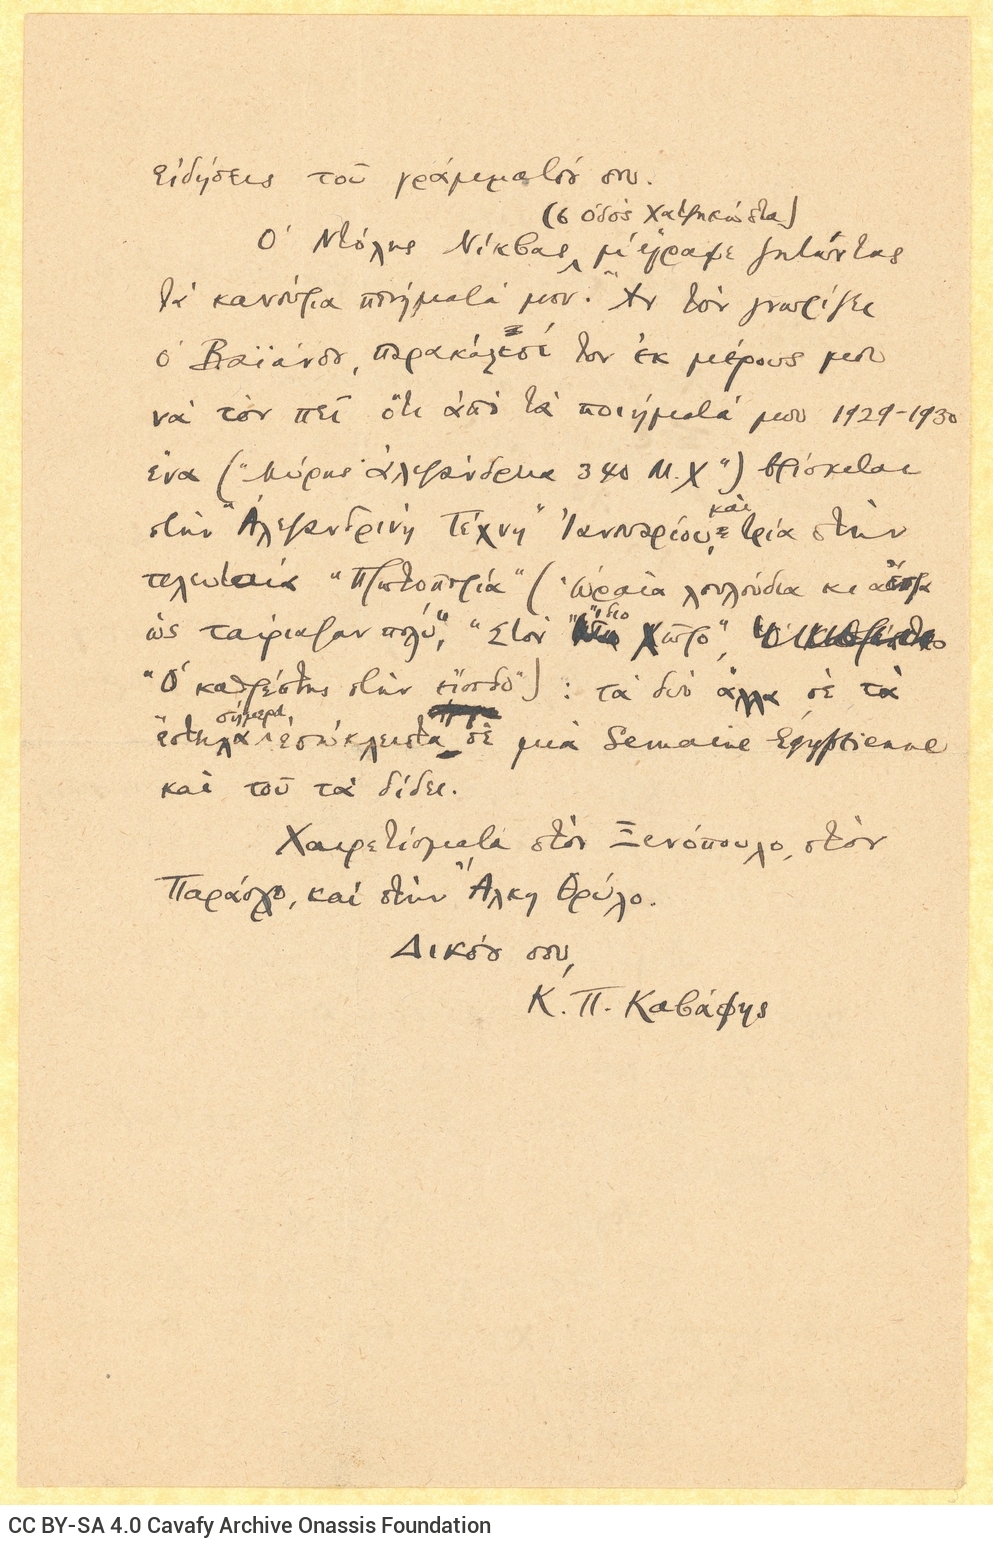 εἰδήσεις τοῦ γράμματός σου.
(6 ὁδὸς Χατζηκώστα)
Ὁ Ντόλης Νίκβας μ' ἔγραψε ζητῶντας
τὰ καινούρια ποιήματά μου. Ἂν τὸν γνωρίζει
ὁ Βαϊάνος, παρακάλεσέ τον ἐκ μέρους μου
νὰ τὸν πεῖ ὅτι ἀπὸ τὰ ποιήματά μου 1929-1930
ἕνα ("Μύρης· Ἀλεξάνδρεια 340 Μ.Χ") βρίσκεται
στὴν "Ἀλεξανδρινὴ Τέχνη" Ἰανουαρίου, καὶ τρία στὴν
τελευταία "Πρωτοπορία" ("Ὡραῖα λουλούδια κι ἄσπρα
ὡς ταίριαζαν πολύ", "Στὸν ἴδιο Χῶρο",
"Ὁ καθρέπτης στὴν εἴσοδο") : τὰ δυὸ ἄλλα σὲ τὰ
ἔστειλα σήμερα ἐσώκλειστα σὲ μιὰ Semaine Égyptienne
καὶ τοῦ τὰ δίδει.
Χαιρετίσματα στὸν Ξενόπουλο, στὸν
Παράσχο, καὶ στὴν Ἄλκη Θρύλο.
Δικός σου,
Κ. Π. Καβάφης
CC BY-SA 4.0 Cavafy Archive Onassis Foundation